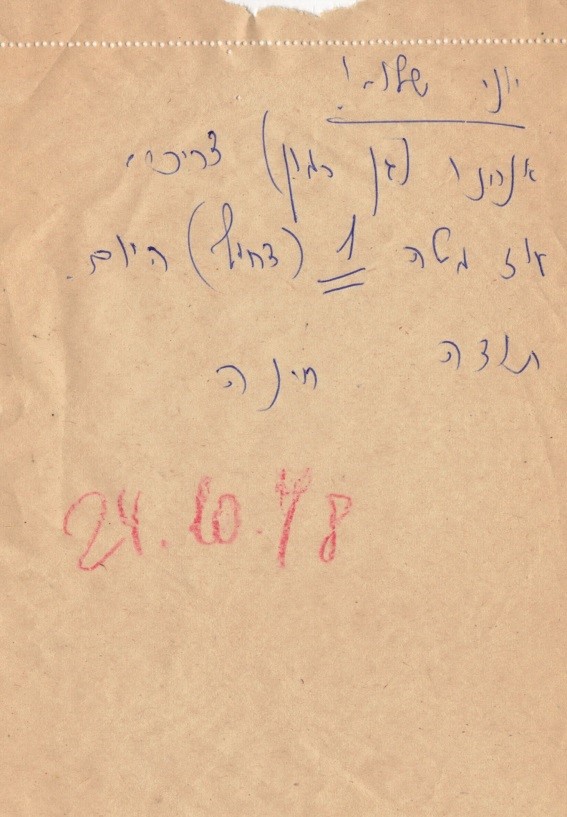 יוני שלום!
אנחנו (גן רימון) צריכים
את משה 1 (דחוף) היום.
תודה חינה
24.10.48